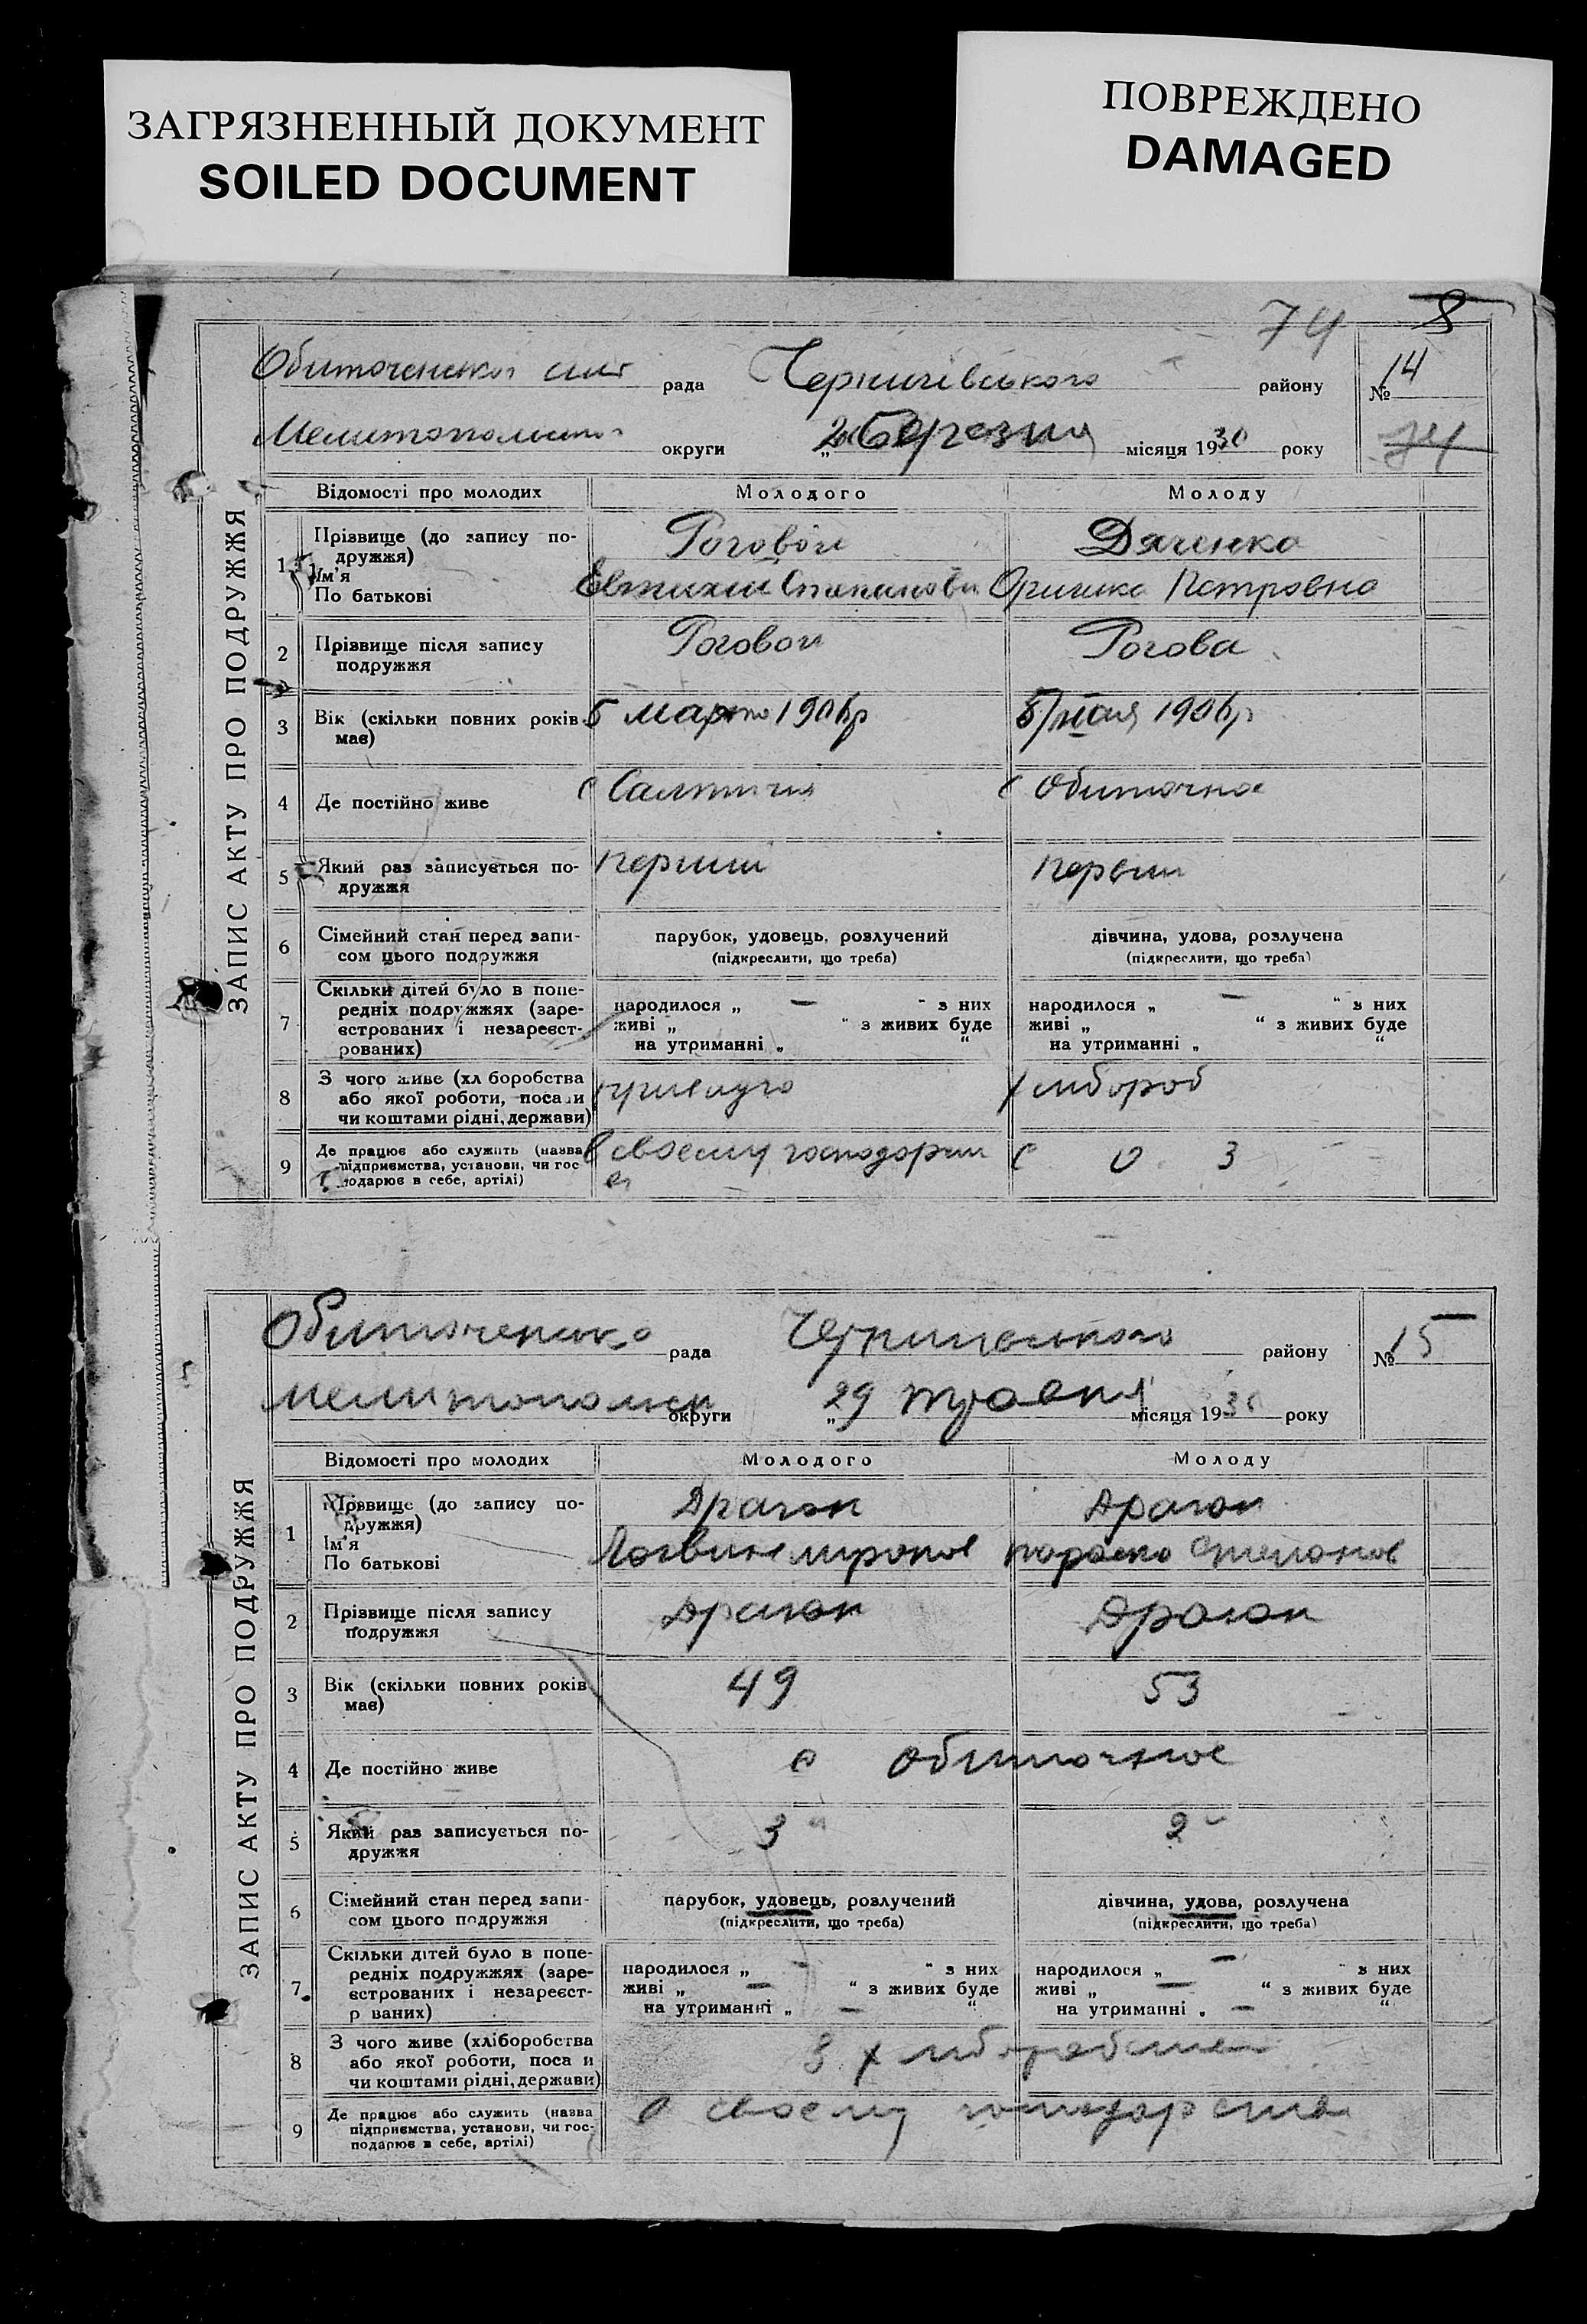 ЗАГРЯЗНЕННЫЙ ДОКУМЕНТ
SOILED DOCUMENT
ПОВРЕЖДЕНО
DAMAGED
74 8
рада Чернигівського району № 14
округи „ Березня місяця 1930 року 74
ЗАПИС АКТУ ПРО ПОДРУЖЖЯ
Відомості про молодих Молодого Молоду
1 Прізвище (до запису по-
дружжя) Роговой Дяченко
Ім'я
По батькові Євтихий Степанови Оришка Петровна
2 Прізвище після запису
подружжя Роговой Рогова
3 Вік (скільки повних років
має) 5 марто 1906р 5/мая 1906р
4 Де постійно живе с Салтичия с Обиточное
5 Який раз записується по-
дружжя перший первий
6 Сімейний стан перед запи-
сом цього подружжя парубок, удовець, розлучений дівчина, удова, розлучена
(підкреслити, що треба) (підкреслити, що треба)
7 Скільки дітей було в попе-
редніх подружжях (заре-
єстрованих і незареєст-
рованих)
народилося „ — “ з них народилося „ — “ з них
живі „ “ з живих буде живі „ “ з живих буде
на утриманні „ “ на утриманні „ “
8 З чого живе (хл боробства
або якої роботи, посади
чи коштами рідні, держави) хлібороб
9 Де працює або служить (назва
підприємства, установи, чи гос-
подарює в себе, артілі) в своєму С О З
Обиточенсько рада Чернигівського району № 15
Мелитопольск округи „ 29 травня місяця 1930 року
ЗАПИС АКТУ ПРО ПОДРУЖЖЯ
Відомості про молодих Молодого Молоду
1 Прізвище (до запису по-
дружжя) Драган Драган
Ім'я
По батькові Логвин миронов параско Степанов
2 Прізвище після запису
подружжя Драган Драган
3 Вік (скільки повних років
має) 49 53
4 Де постійно живе с Обиточное
5 Який раз записується по-
дружжя 3й 2й
6 Сімейний стан перед запи-
сом цього подружжя парубок, удовець, розлучений дівчина, удова, розлучена
(підкреслити, що треба) (підкреслити, що треба)
7 Скільки дітей було в попе-
редніх подружжях (заре-
єстрованих і незареєст-
р ваних)
народилося „ — “ з них народилося „ — “ з них
живі „ — “ з живих буде живі „ — “ з живих буде
на утриманні „ — “ на утриманні „ — “
8 З чого живе (хліборобства
або якої роботи, поса и
чи коштами рідні, держави) З хліборобства
9 Де працює або служить (назва
підприємства, установи, чи гос-
подарює в себе, артілі) в своєму господарстві